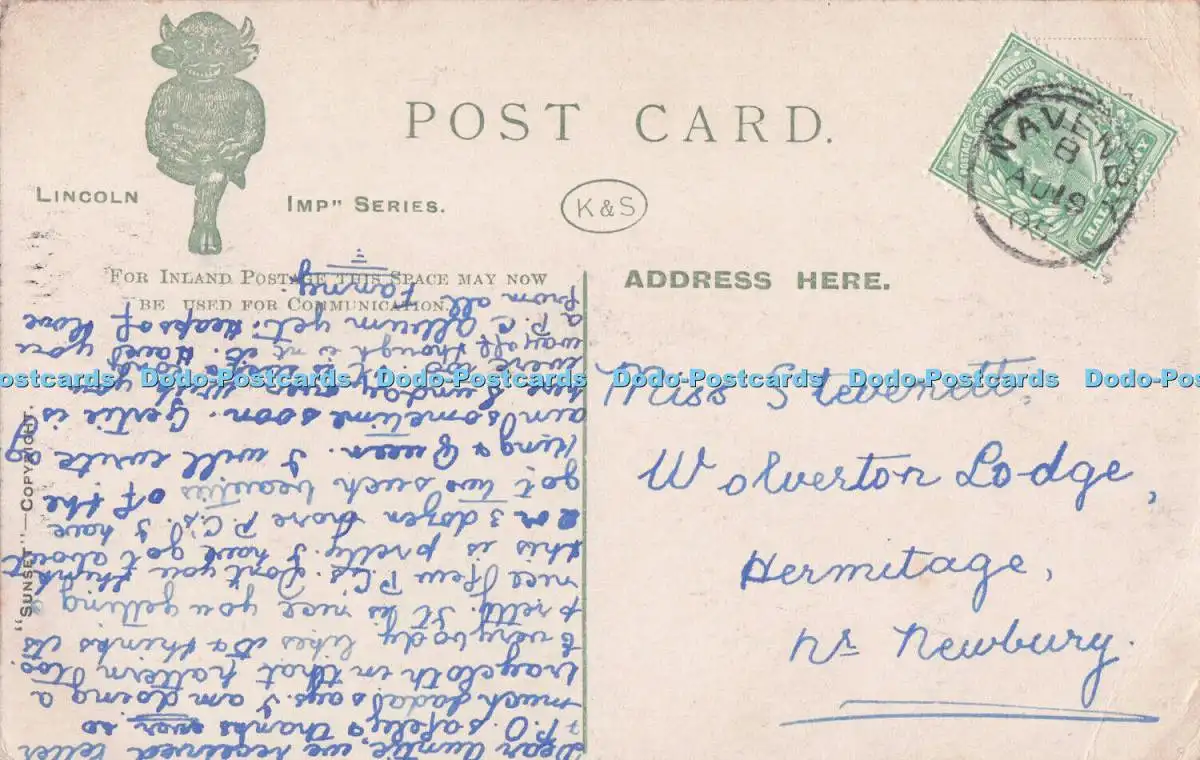 POST CARD.
LINCOLN IMP" SERIES.
K & S
FOR INLAND POSTAGE THIS SPACE MAY NOW
BE USED FOR COMMUNICATION.
ADDRESS HERE.
"SUNSET"—COPYRIGHT.
POSTAGE & REVENUE
HALFPENNY
NAVENBY
B
AU 19
Miss Stevenett,
Wolverton Lodge,
Hermitage,
Nr Newbury.
Dear Auntie, we received letter
& P.O. safely & thanks ever so
much dada says. I am doing a
traycloth in that pattern too
Everybody likes it & thinks its
pretty. It is nice you getting
nice few P.C.s. Dont you think
this is pretty. I have got about
2 or 3 dozen more P.C.s. I have
got two such beauties of the
King & Queen. I will write
aunt sometime soon. Gertie is
Sunday
way off though is nt it. Have you
a P.C album yet. Heaps of love
from all
Fanny
Dodo-Postcards Dodo-Postcards Dodo-Postcards Dodo-Postcards Dodo-Postcards Dodo-Postcards